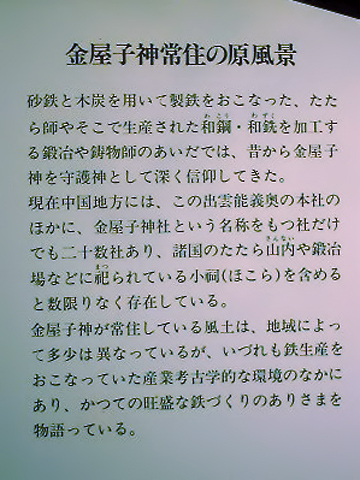 金屋子神常住の原風景
砂鉄と木炭を用いて製鉄をおこなった、たた
ら師やそこで生産された和鋼・和銑を加工す
る鍛冶や鋳物師のあいだでは、昔から金屋子
神を守護神として深く信仰してきた。
現在中国地方には、この出雲能義奥の本社の
ほかに、金屋子神社という名称をもつ社だけ
でも二十数社あり、諸国のたたら山内や鍛冶
場などに祀られている小祠(ほこら)を含める
と数限りなく存在している。
金屋子神が常住している風土は、地域によっ
て多少は異なっているが、いづれも鉄生産を
おこなっていた産業考古学的な環境のなかに
あり、かつての旺盛な鉄づくりのありさまを
物語っている。